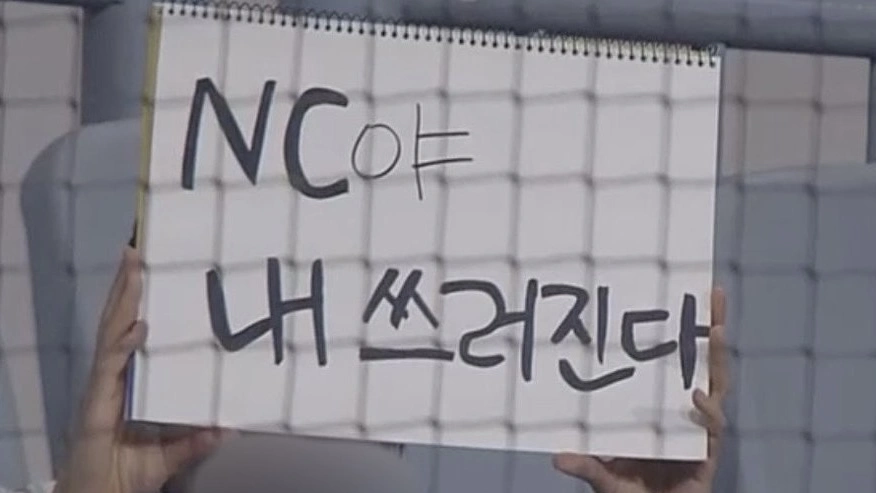 NC야
내 쓰러진다